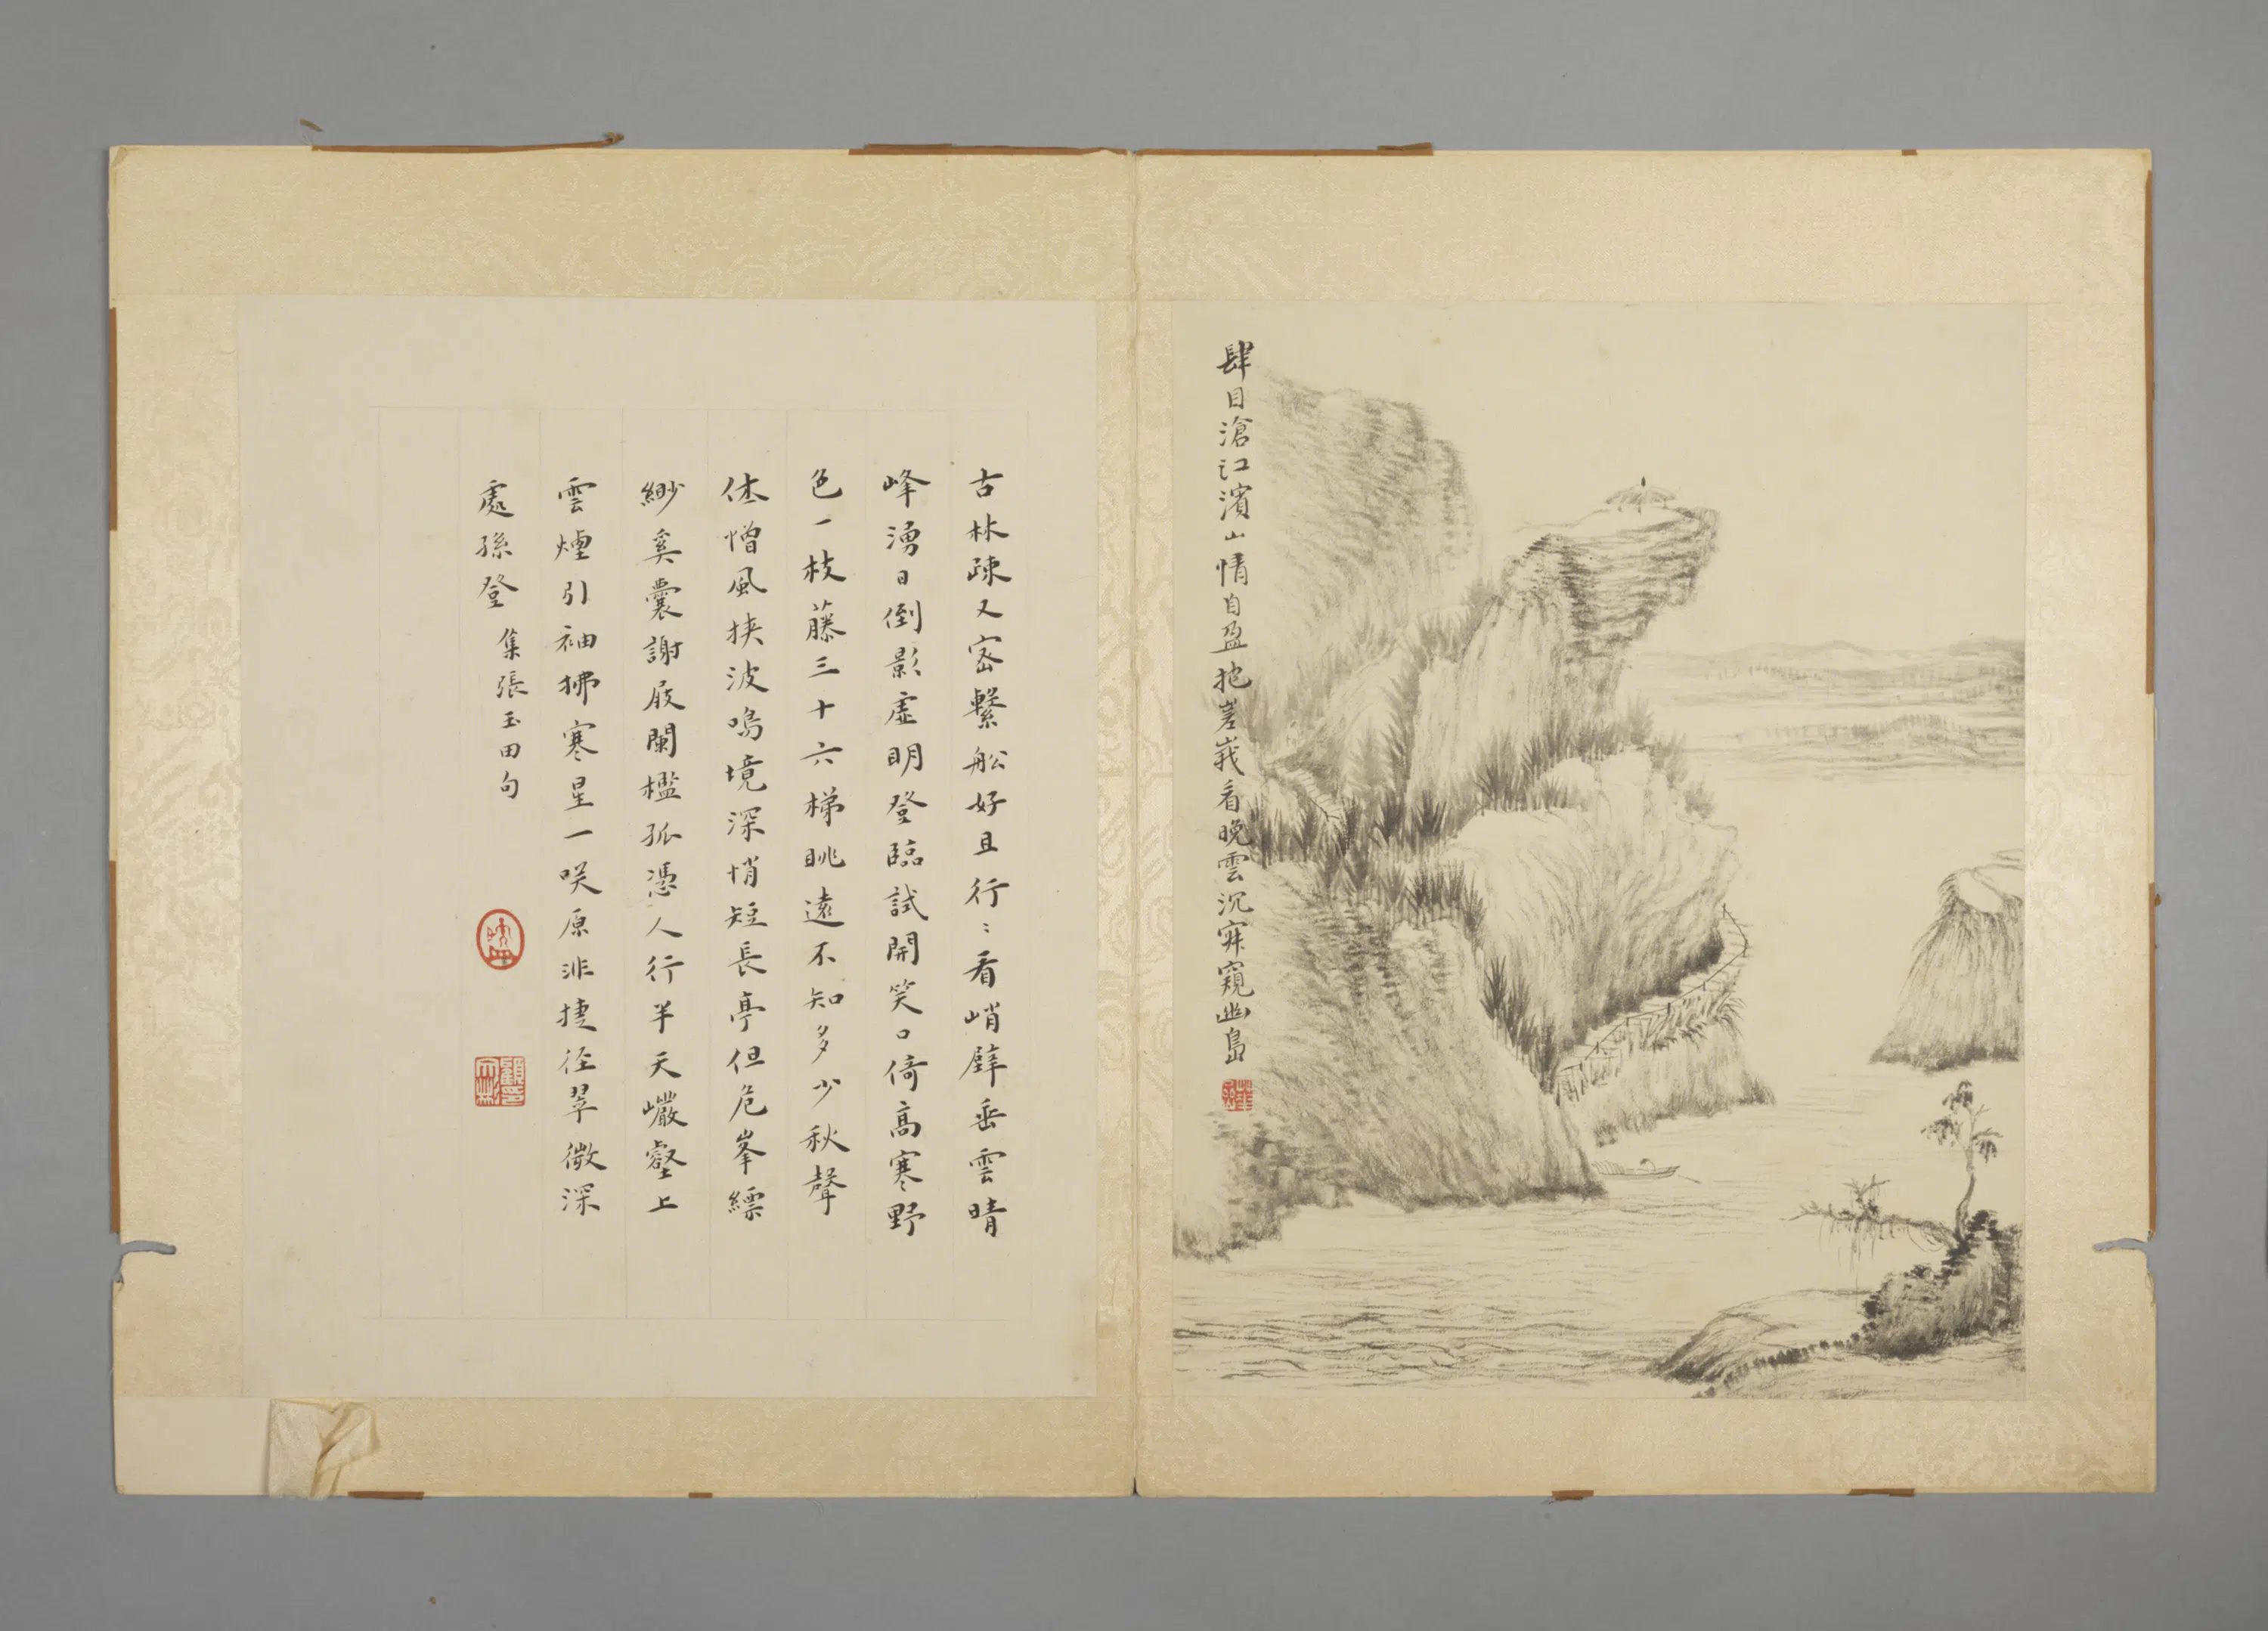 肆目滄江濱山情自盈抱嵳峩看晚雲沉寂窺幽島
古林疎又密繫舩好且行〻看峭壁垂雲晴
峰湧日倒影虛明登臨試開笑口倚高寒野
色一枝藤三十六梯眺遠不知多少秋聲
休憎風挾波鳴境深悄短長亭但危峯縹
緲奚囊謝屐闌檻孤憑人行半天巖壑上
雲煙引袖拂寒星一咲原非捷徑翠微深
處孫登 集張玉田句